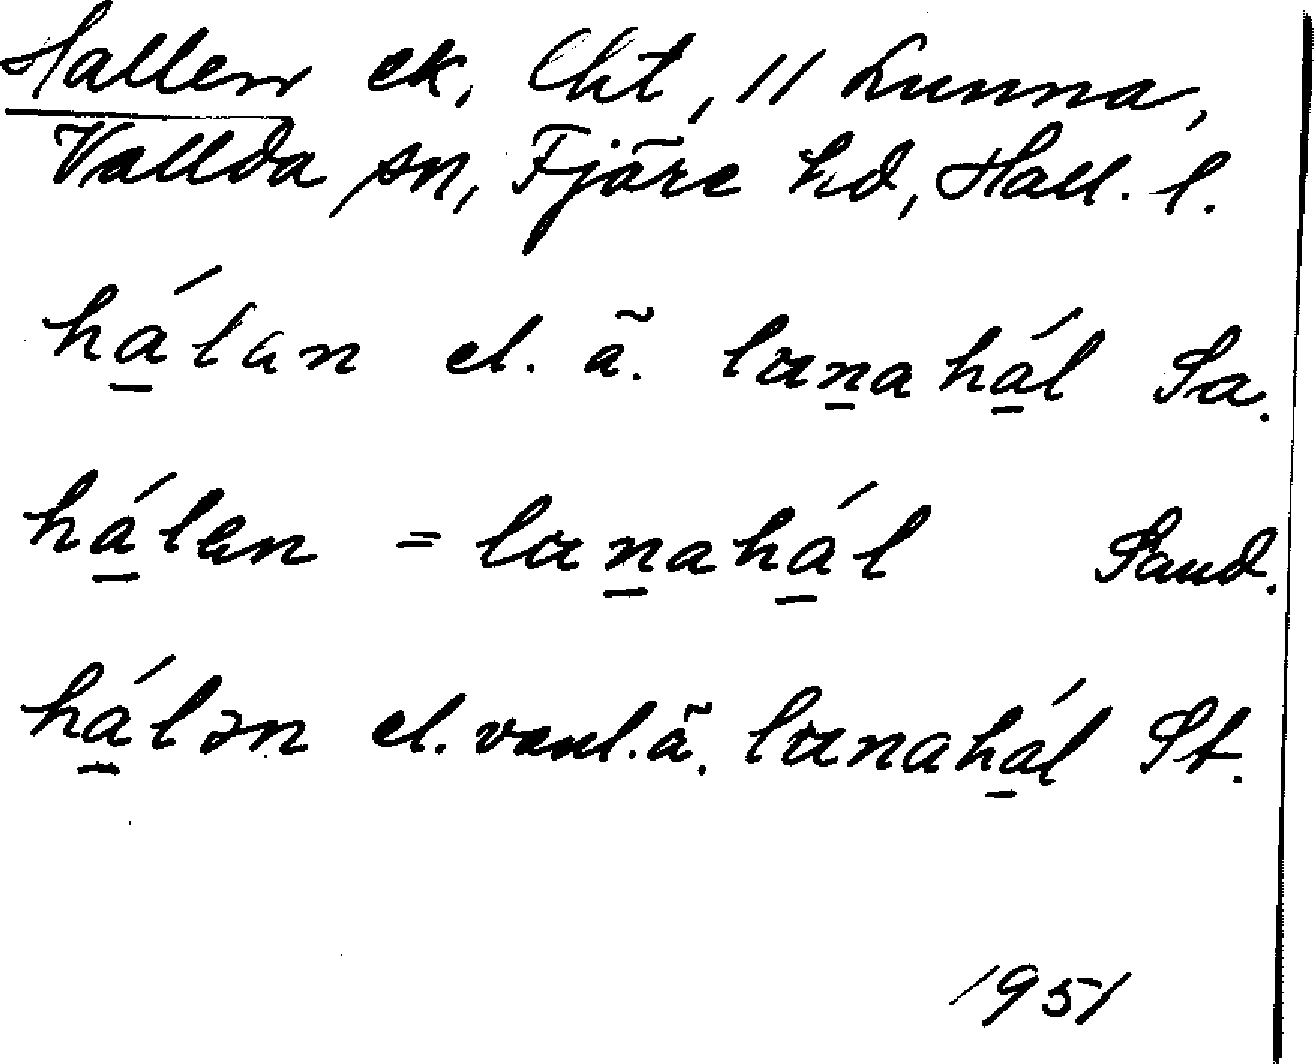 Hallen ek, lht, 11 Lunna,
Vallda sn, Fjäre hd, Hall. l.
há̱lan el. ä. luṉahá̱l Sa.
há̱len = luṉahá̱l Sand.
há̱lən el. vanl. ä. lunahá̱l St.
1951